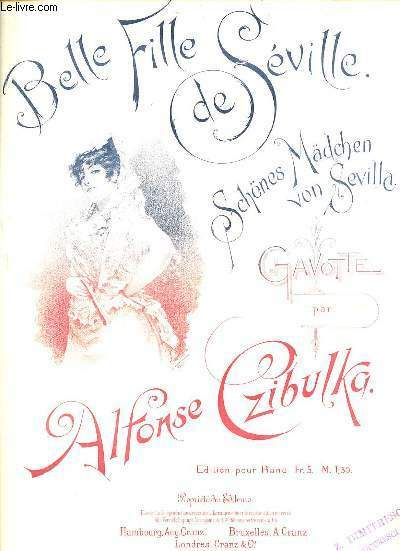 Belle Fille
de Séville.
Schönes Mädchen
von Sevilla.
GAVOTTE
par
Alfonse Czibulka.
Edition pour Piano Fr. 5. M. 1,30.
Hambourg, Aug. Cranz. Bruxelles, A. Cranz.
Londres, Cranz & Co.